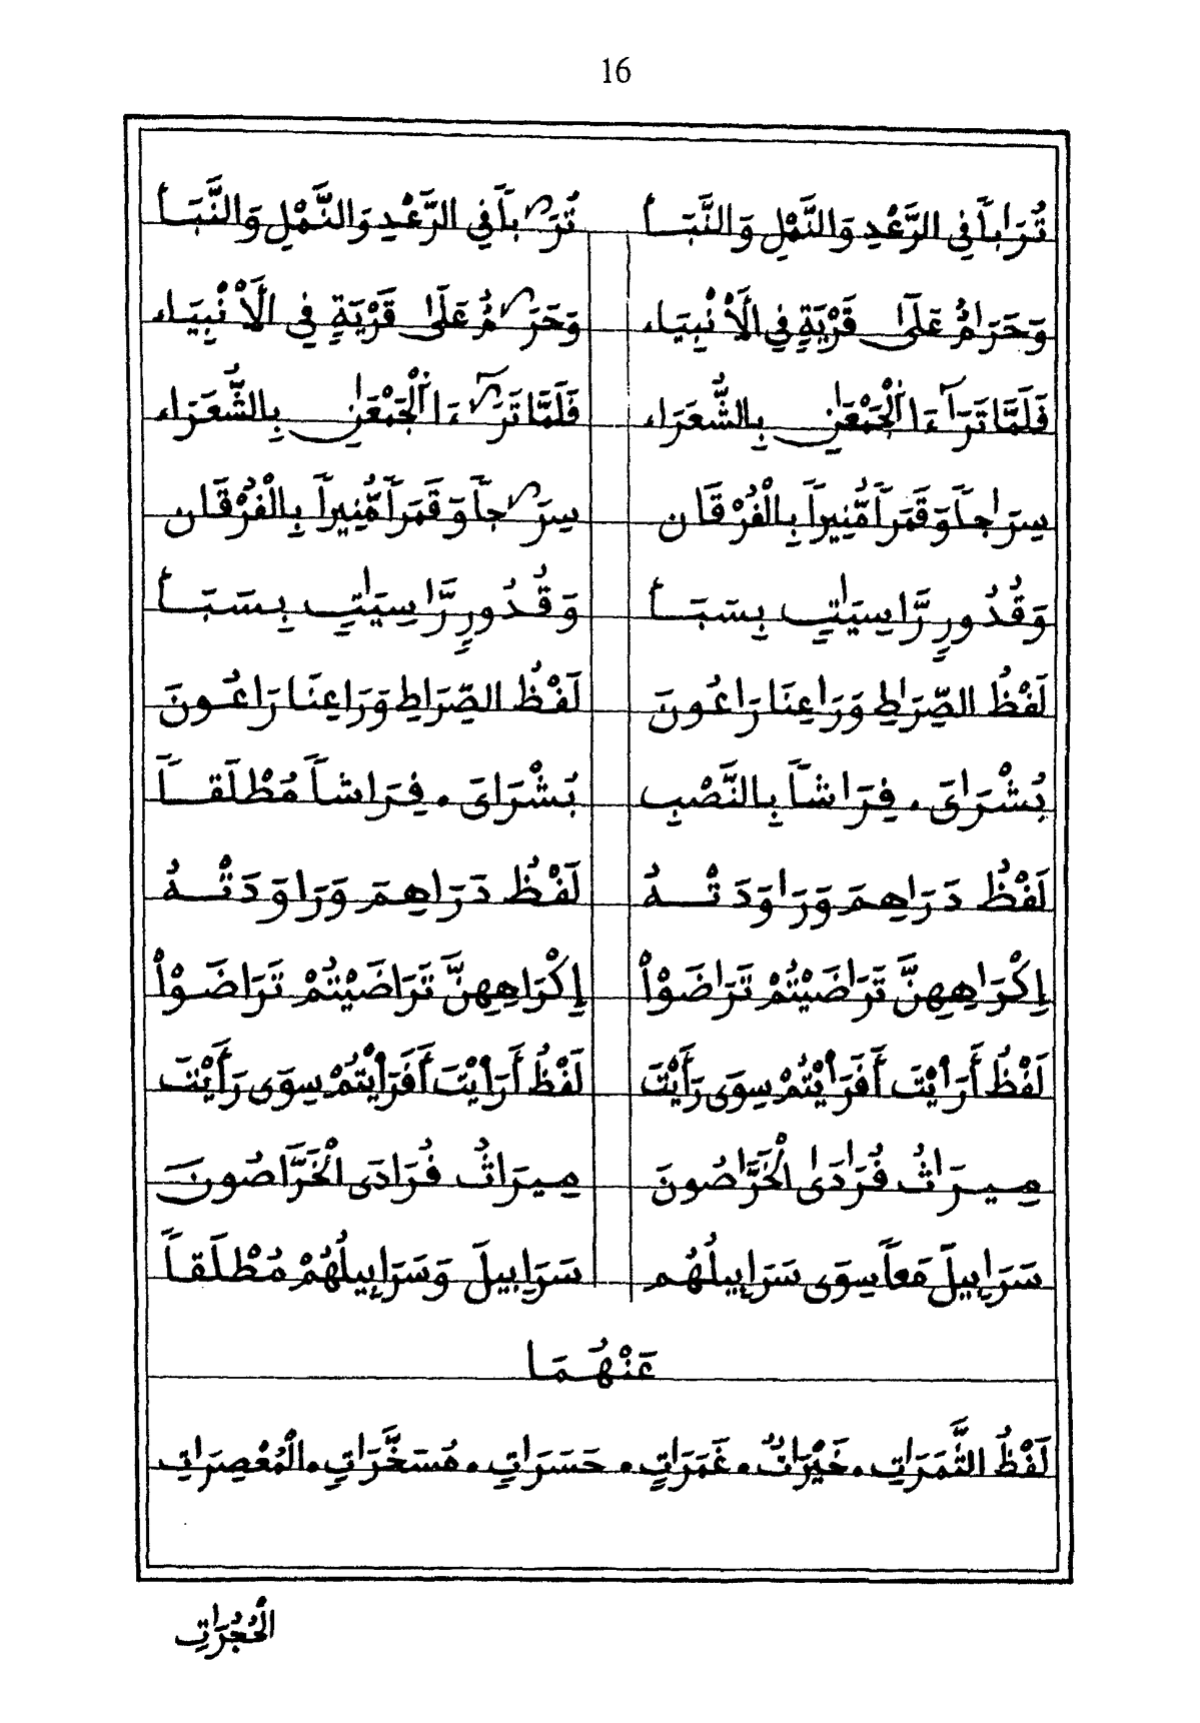 16
تُرَٰباً فِي الرَّعْدِ وَالنَّمْلِ وَالنَّبَأ تُرَٰباً فِي الرَّعْدِ وَالنَّمْلِ وَالنَّبَأ
وَحَرَٰمٌ عَلَىٰ قَرْيَةٍ فِي الَأنْبِيَاء وَحَرَٰمٌ عَلَىٰ قَرْيَةٍ فِي الَأنْبِيَاء
فَلَمَّا تَرَٰٓءَا اَ۬لْجَمْعَٰنِ بِالشُّعَرَاء فَلَمَّا تَرَٰٓءَا اَ۬لْجَمْعَٰنِ بِالشُّعَرَاء
سِرَٰجاً وَقَمَراً مُّنِيراً بِالْفُرْقَان سِرَٰجاً وَقَمَراً مُّنِيراً بِالْفُرْقَان
وَقُدُورٍ رَّاسِيَٰتٍ بِسَبَأ وَقُدُورٍ رَّاسِيَٰتٍ بِسَبَأ
لَفْظُ الصِّرَٰطِ وَرَٰعِنَا رَٰعُونَ لَفْظُ الصِّرَاطِ وَرَاعِنَا رَاعُونَ
بُشْرَٰىَ . فِرَٰشاً بِالنَّصْبِ بُشْرَاىَ . فِرَاشاً مُطْلَقاً
لَفْظُ دَرَٰهِمَ وَرَٰوَدَتْهُ لَفْظُ دَرَاهِمَ وَرَاوَدَتْهُ
إِكْرَٰهِهِنَّ تَرَٰضَيْتُمْ تَرَٰضَوْاْ إِكْرَاهِهِنَّ تَرَاضَيْتُمْ تَرَاضَوْاْ
لَفْظُ أَرَٰيْتَ أَفَرَٰيْتُمْ سِوَى رَأَيْتَ لَفْظُ أَرَاْيْتَ أَفَرَاْيْتُمْ سِوَى رَأَيْتَ
مِيرَٰثُ فُرَٰدَىٰ الْخَرَّٰصُونَ مِيرَاثُ فُرَادَى الْخَرَّاصُونَ
سَرَٰبِيلَ مَعاً سِوَى سَرَٰبِيلُهُم سَرَابِيلَ وَسَرَابِيلُهُمْ مُطْلَقاً
عَنْهُمَا
لَفْظُ الثَّمَرَٰتِ . خَيْرَٰتٌ . غَمَرَٰتٍ . حَسَرَٰتٍ . مُسَخَّرَٰتٍ . الْمُعْصِرَٰتِ
الْحُجُرَٰتِ